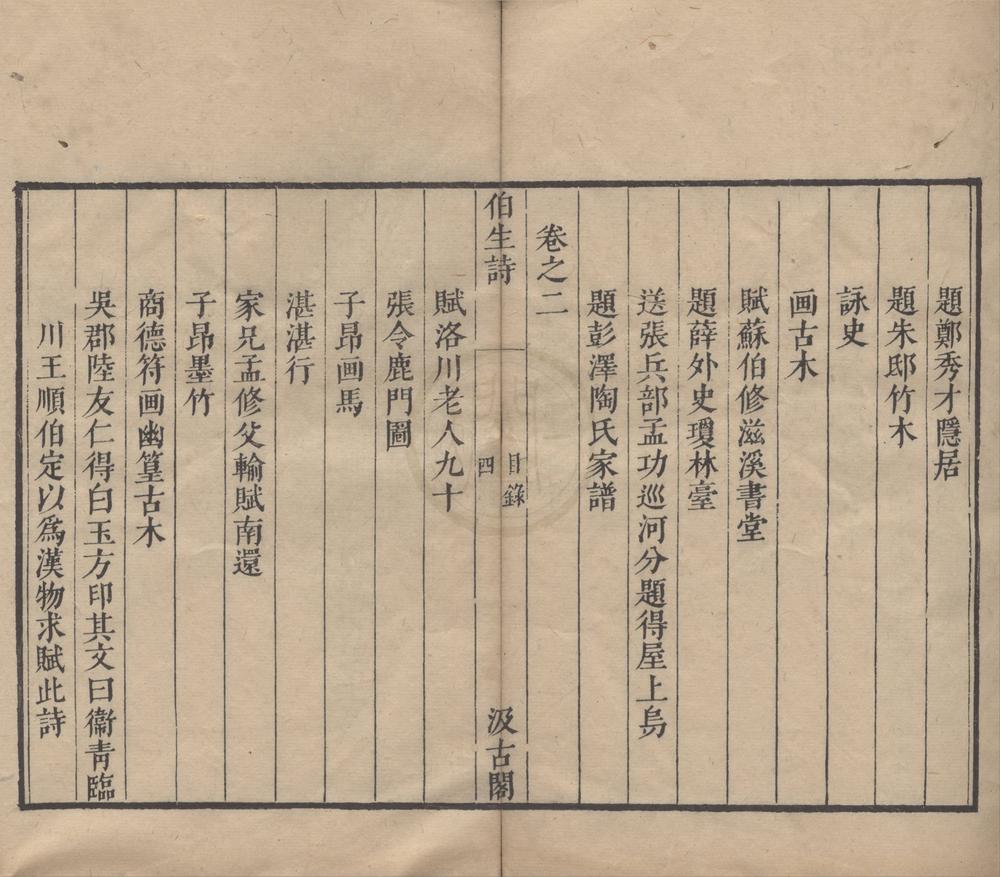 題鄭秀才隱居
題朱邸竹木
詠史
画古木
賦蘇伯修滋溪書堂
題薛外史瓊林臺
送張兵部孟功巡河分題得屋上烏
題彭澤陶氏家譜
卷之二
伯生詩
目錄
四
汲古閣
賦洛川老人九十
張令鹿門圖
子昂画馬
湛湛行
家兄孟修父輸賦南還
子昂墨竹
商德符画幽篁古木
吳郡陸友仁得白玉方印其文曰衞青臨
川王順伯定以爲漢物求賦此詩